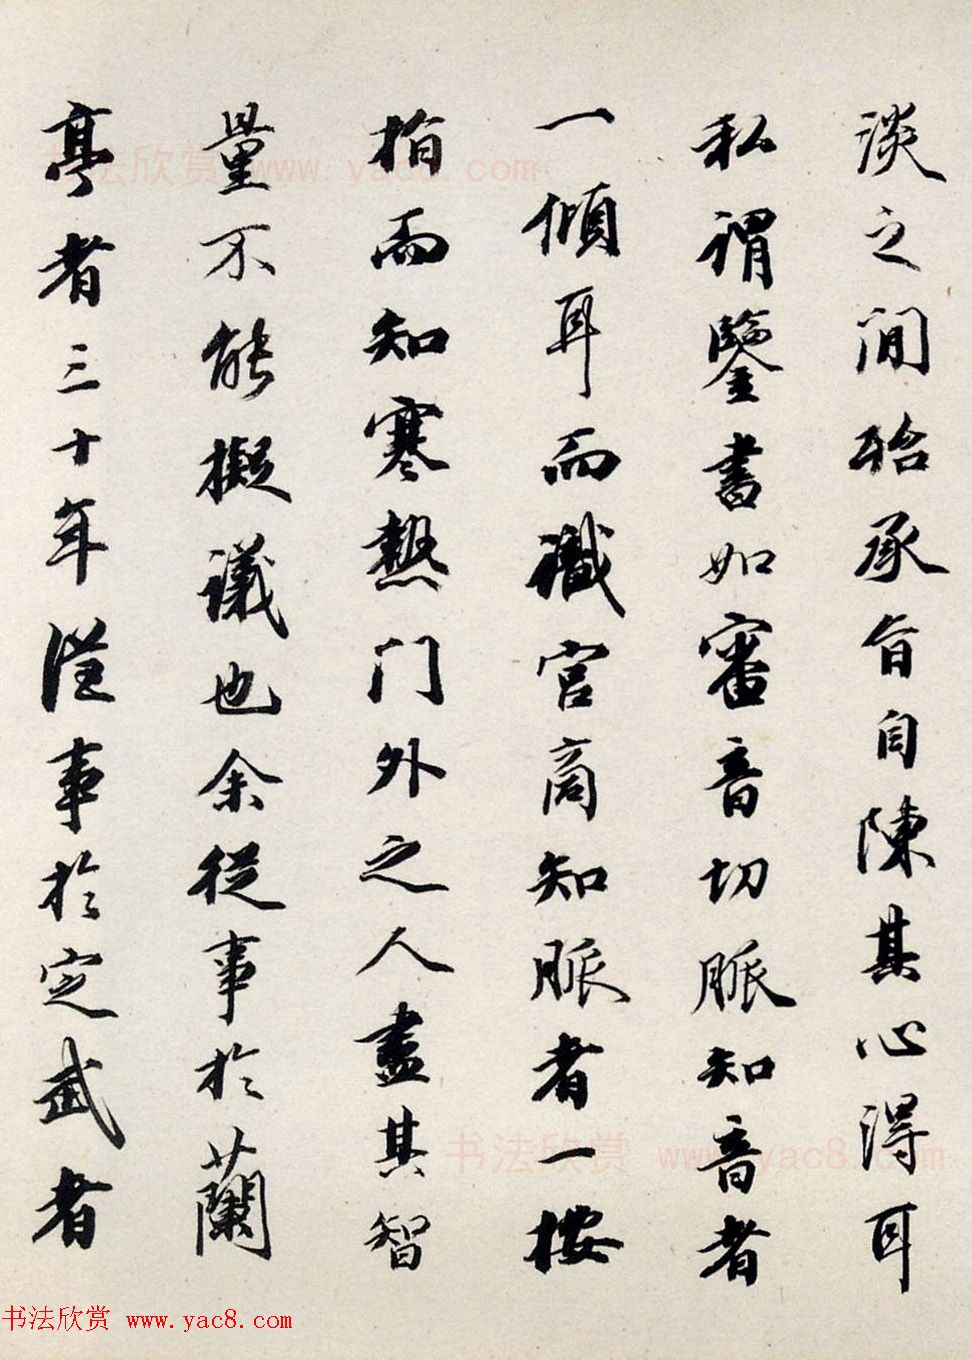 淡之间殆承旨自陳其心得耳
私謂鑒書如審音切脈知音者
一傾耳而識宫商知脈者一按
指而知寒熱門外之人盡其智
量不能擬議也余從事於蘭
亭者三十年從事於定武者
书法欣赏 www.yac8.com
书法欣赏 www.yac8.com
书法欣赏 www.yac8.com